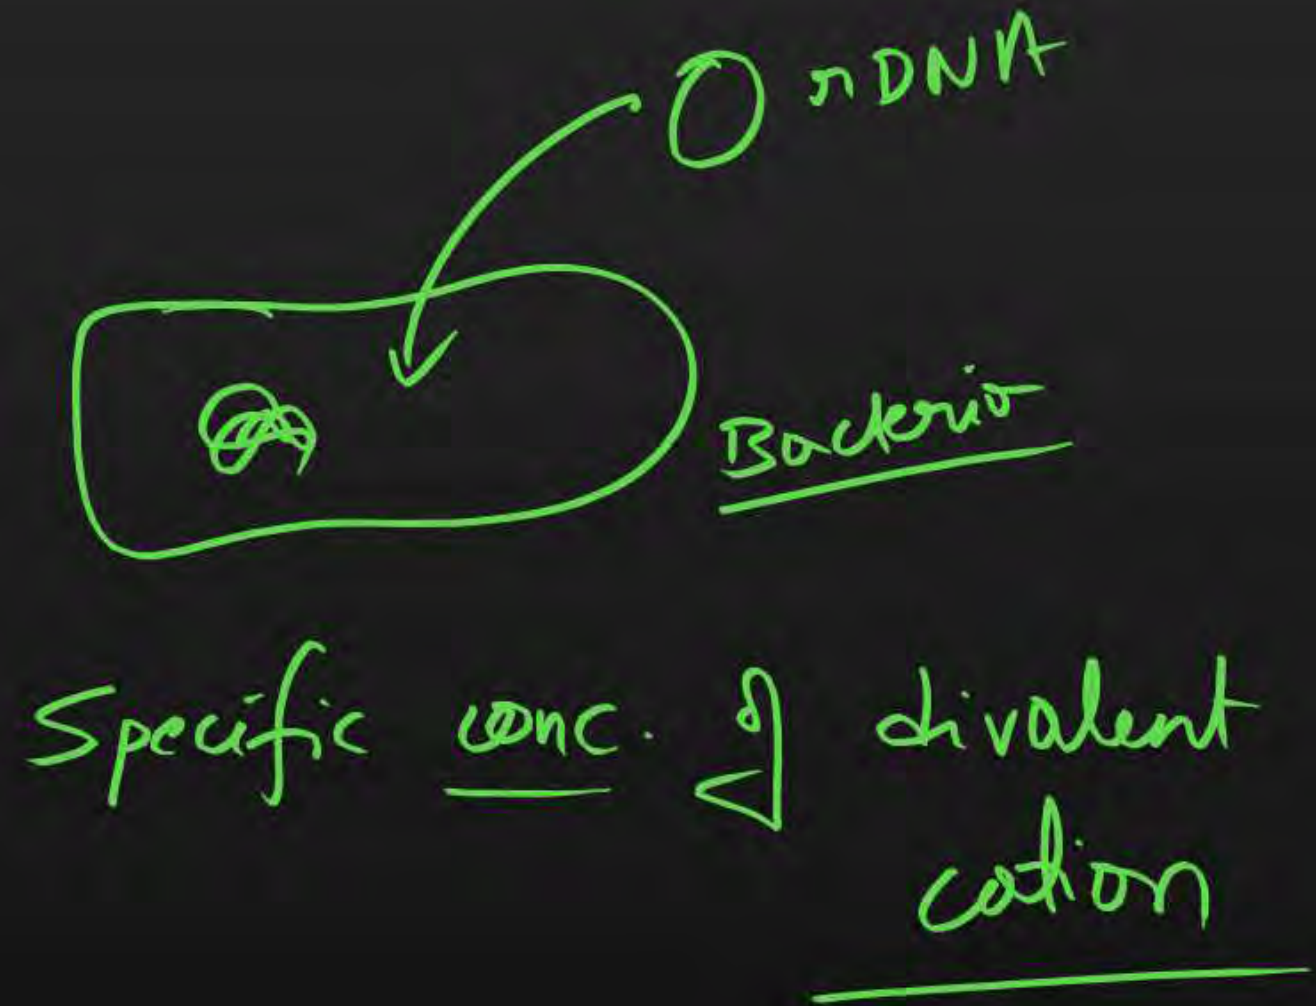 rDNA
Bacteria
Specific conc. of divalent
cation